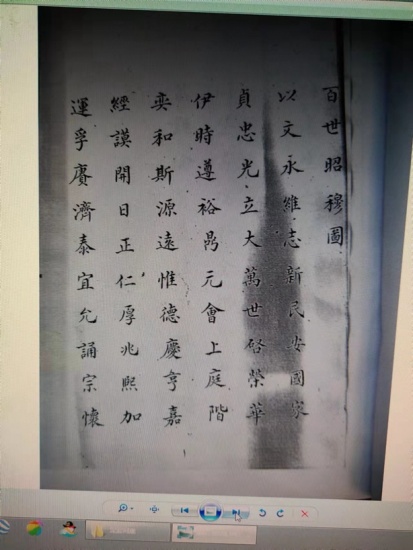 百世昭穆圖
以文永維志新民安國家
貞忠光立大萬世啓榮華
伊時遵裕昂元會上庭階
奕和斯源遠惟德慶亨嘉
經謨開日正仁厚兆熙加
運孚賡濟泰宜允誦宗懷